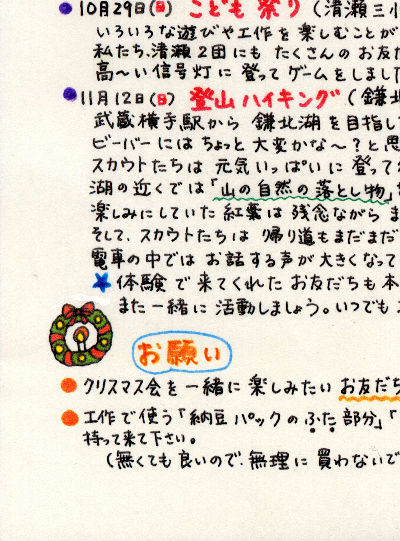 10月29日(日) こども祭り (清瀬三小
いろいろな遊びや工作を楽しむことが
私たち、清瀬2団にも たくさんのお友だ
高〜い信号灯に登ってゲームをしました
11月12日(日) 登山ハイキング (鎌北
武蔵横手駅から 鎌北湖を目指し
ビーバーにはちょっと大変かな〜?と思
スカウトたちは 元気いっぱいに 登って
湖の近くでは「山の自然の落とし物」
楽しみにしていた紅葉は残念ながら ま
そして、スカウトたちは 帰り道もまだまだ
電車の中では お話する声が大きくなって
★体験で来てくれた お友だちも 本
また一緒に 活動しましょう。いつでも
お願い
クリスマス会を一緒に楽しみたい お友だち
工作で使う「納豆パックのふた部分」「
持って来て下さい。
(無くても良いので、無理に買わないで